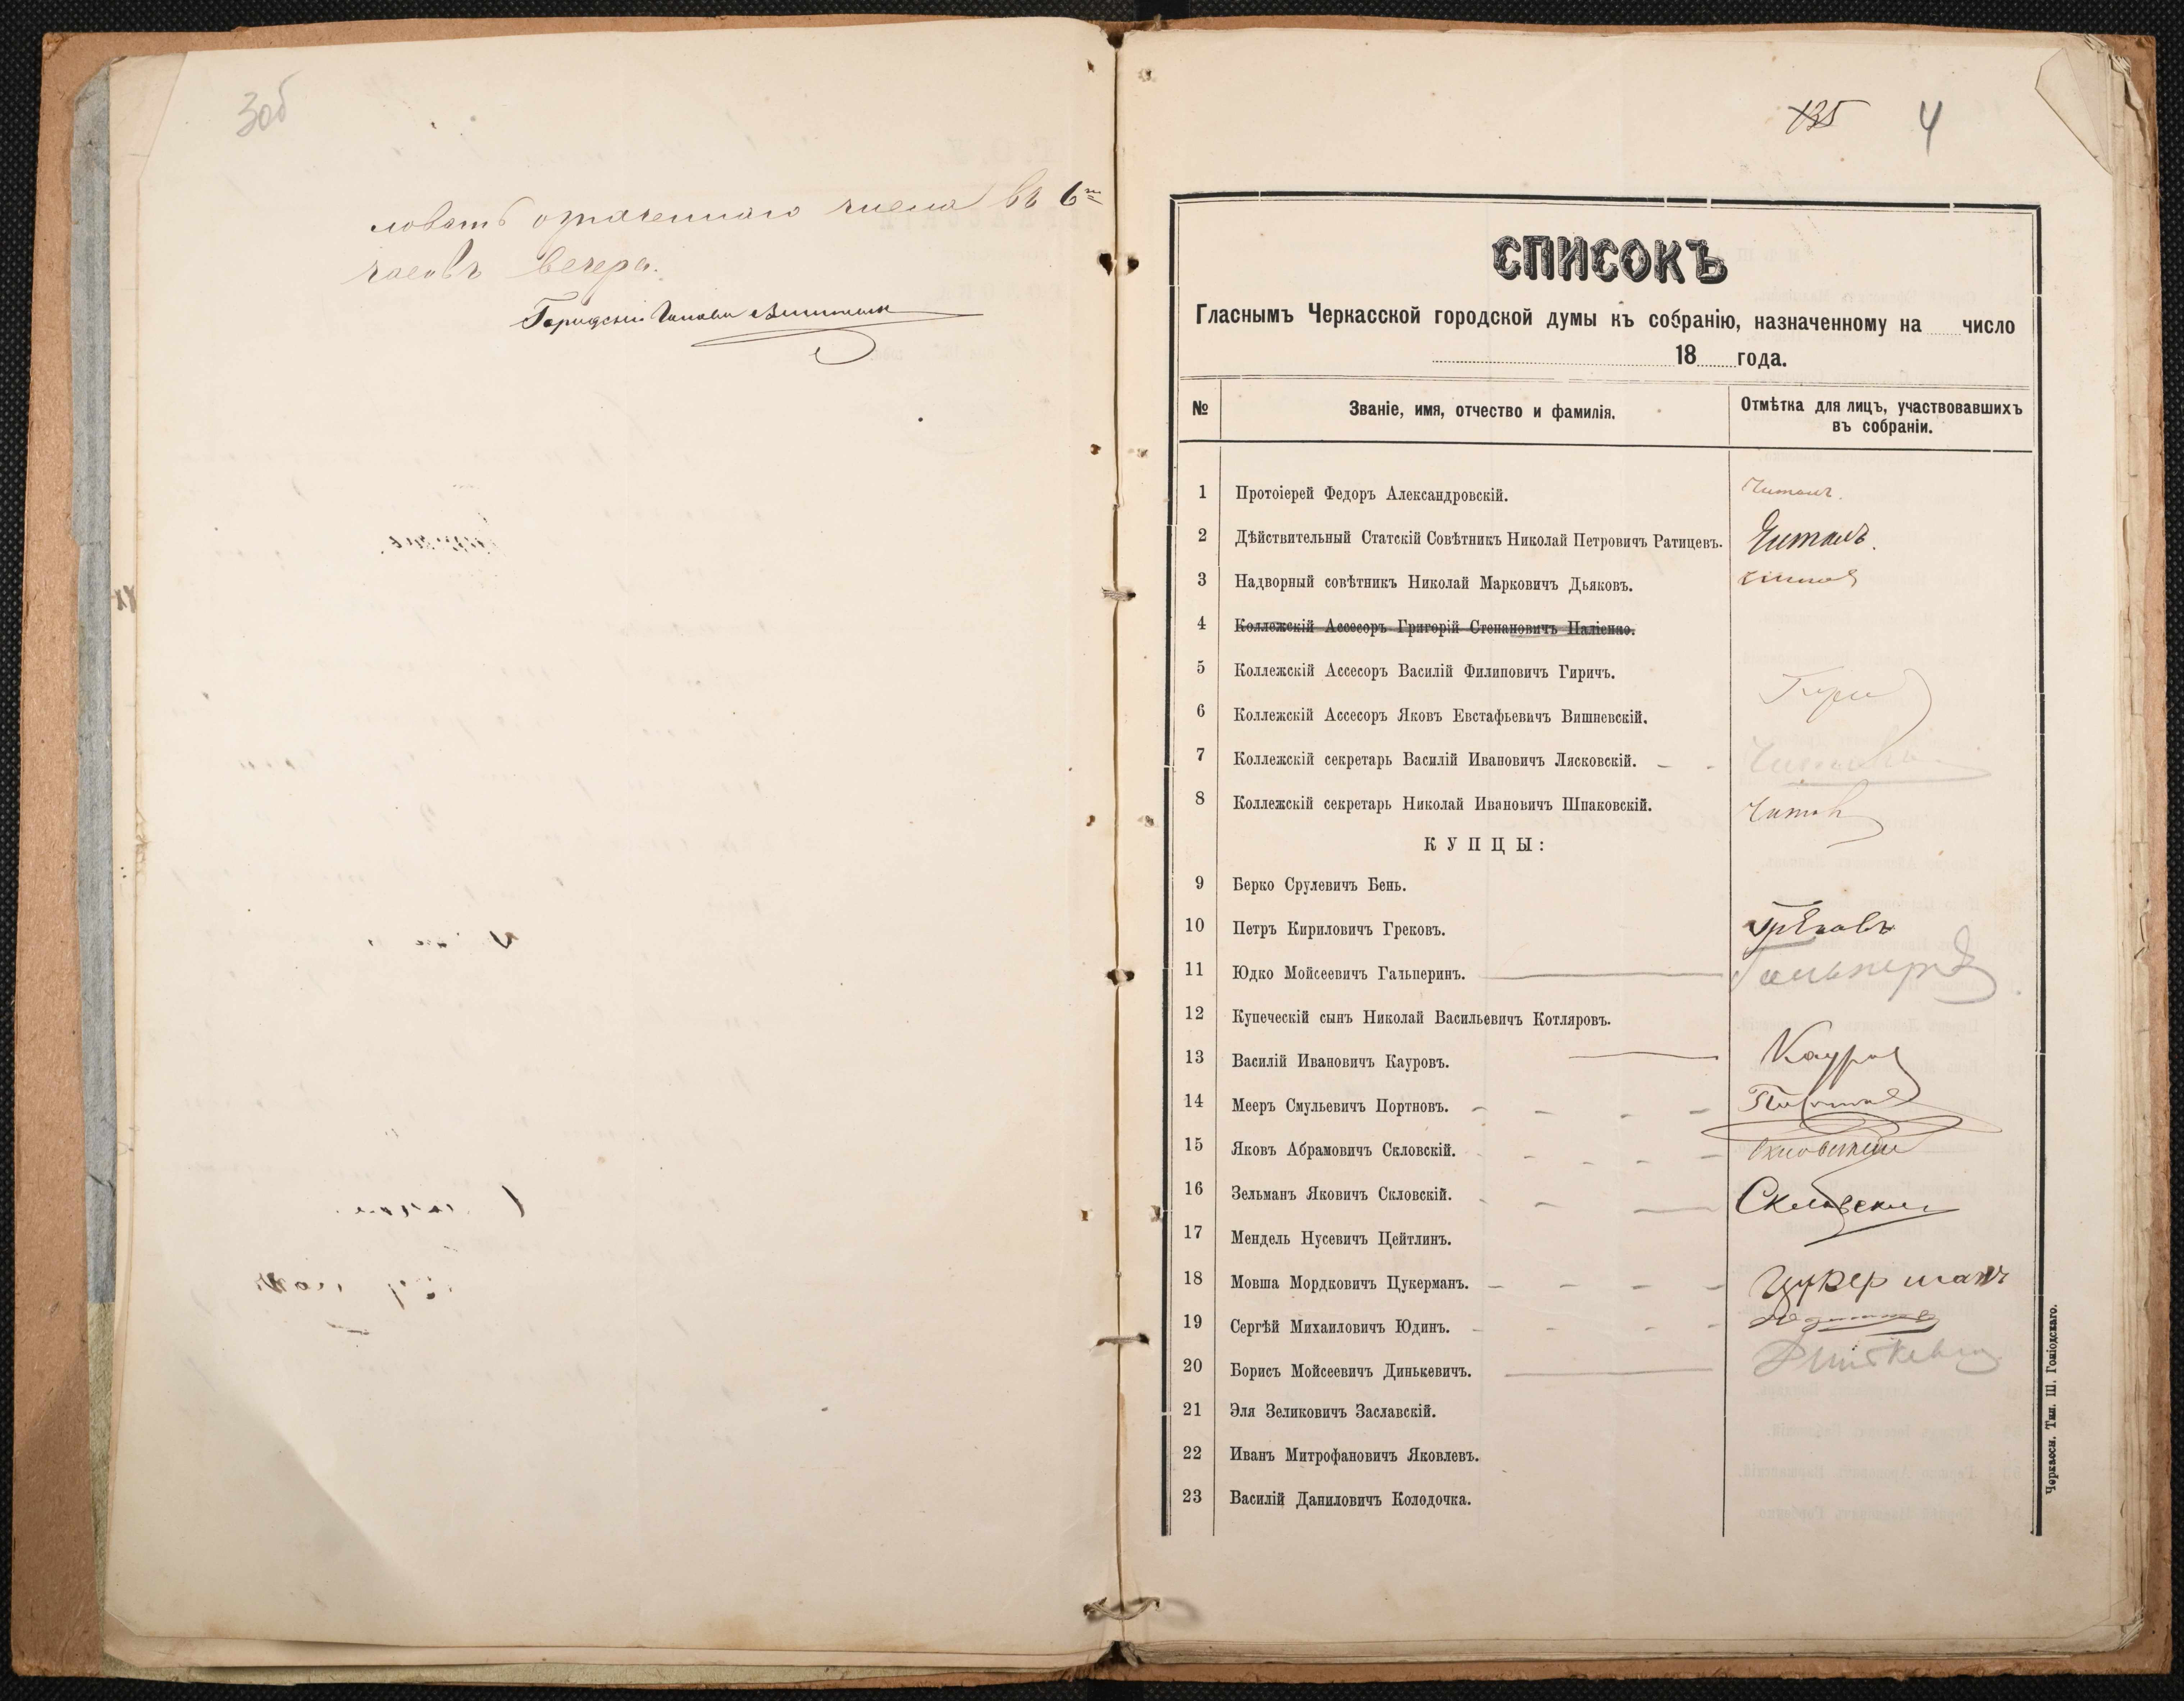 3об
ловать означеннаго числа въ 6ть
часовъ вечера.
Городской Голова
135 4
СПИСОКЪ
Гласнымъ Черкасской городской думы къ собранію, назначенному на ...... число
...... 18 ...... года.
№ Званіе, имя, отчество и фамилія. Отмѣтка для лицъ, участвовавшихъ
въ собраніи.
1 Протоіерей Федоръ Александровскій. Читалъ.
2 Дѣйствительный Статскій Совѣтникъ Николай Петровичъ Ратицевъ. Читалъ.
3 Надворный совѣтникъ Николай Марковичъ Дьяковъ. Читалъ
4 Коллежскій Ассесоръ Григорій Степановичъ Паліенко.
5 Коллежскій Ассесоръ Василій Филиповичъ Гиричъ.
6 Коллежскій Ассесоръ Яковъ Евстафьевичъ Вишневскій.
7 Коллежскій секретарь Василій Ивановичъ Лясковскій.
8 Коллежскій секретарь Николай Ивановичъ Шпаковскій. Читалъ
КУПЦЫ:
9 Берко Срулевичъ Бень.
10 Петръ Кириловичъ Грековъ. Грѣковъ
11 Юдко Мойсеевичъ Гальперинъ. Гальперин
12 Купеческій сынъ Николай Васильевичъ Котляровъ.
13 Василій Ивановичъ Кауровъ. Кауров
14 Мееръ Смульевичъ Портновъ.
15 Яковъ Абрамовичъ Скловскій. Скловский
16 Зельманъ Яковичъ Скловскій. Скловский
17 Мендель Нусевичъ Цейтлинъ.
18 Мовша Мордковичъ Цукерманъ. Цукерманъ
19 Сергѣй Михаиловичъ Юдинъ.
20 Борисъ Мойсеевичъ Динькевичъ. Динькевич
21 Эля Зеликовичъ Заславскій.
22 Иванъ Митрофановичъ Яковлевъ.
23 Василій Даниловичъ Колодочка.
Черкассы. Тип. Ш. Говіодскаго.